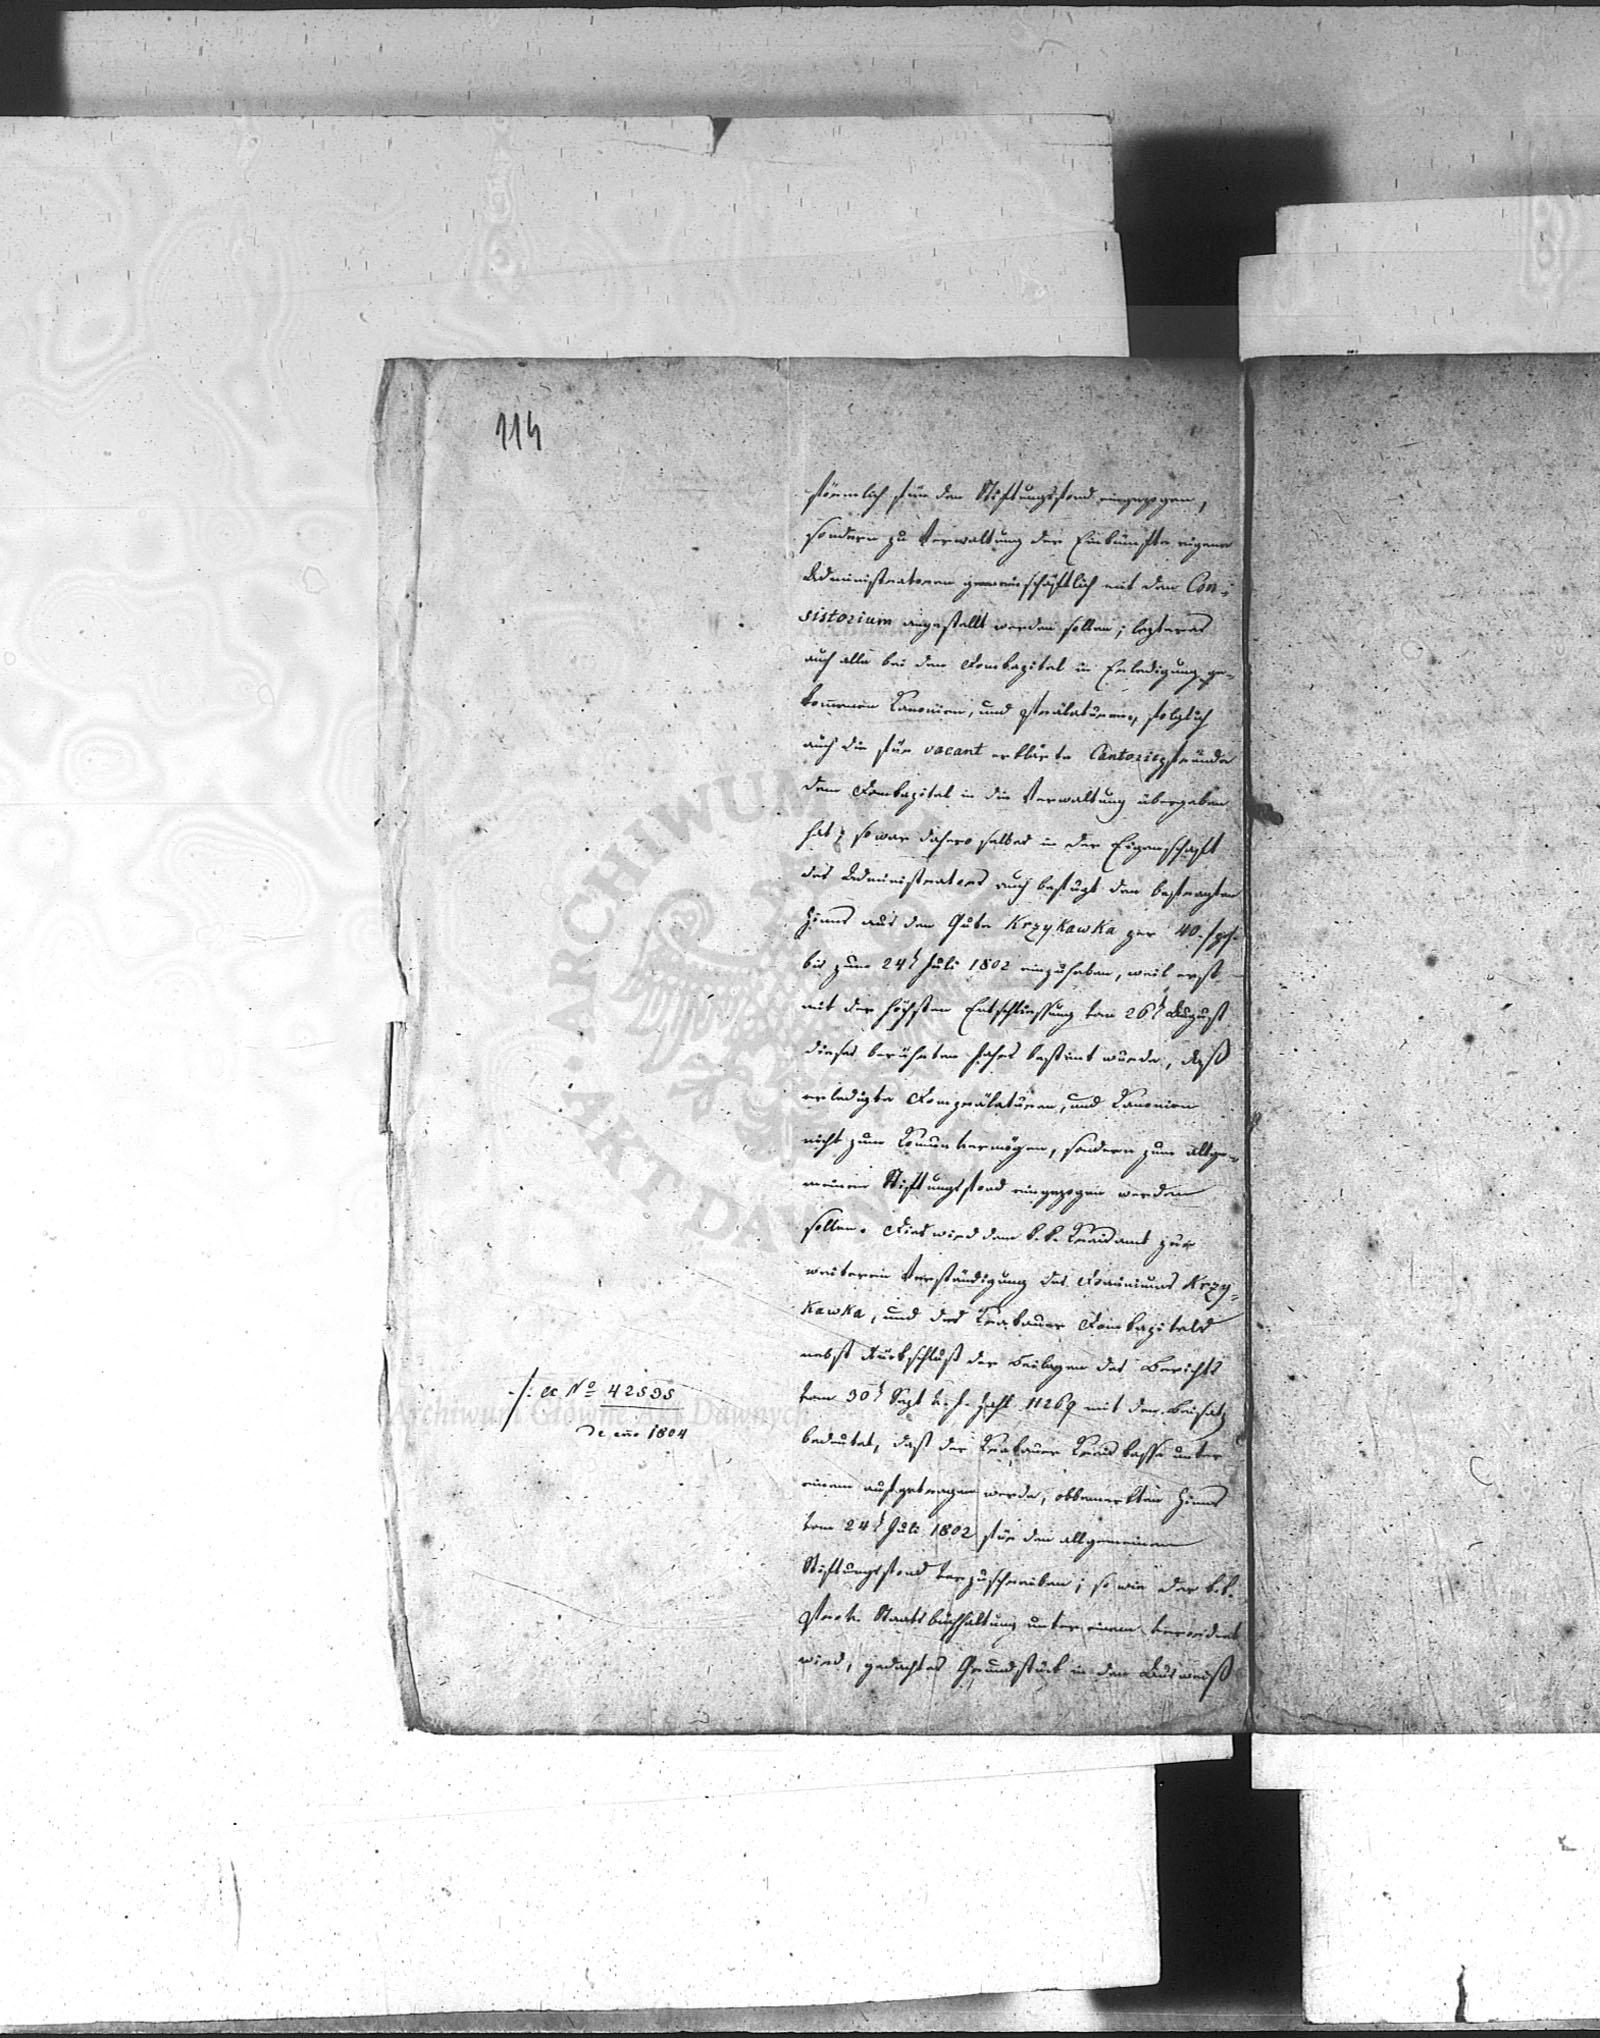 114
förmlich für den Stiftungsfond eingezogen,
sondern zu Verwaltung der Einkünfte eigene
Administratoren gemeinschäftlich mit dem Con-
sistorium angestellt werden sollen; lezteres
auch alle bei dem Domkapitel in Erledigung ge-
kommenen Kanonien, und Prälaturen, folglich
auch die für vacant erklärte Cantoriepfründe
dem Domkapitel in die Verwaltung übergeben
hat; so war dahero selbes in der Eigenschaft
des Administrators auch befugt den befragten
Zinns aus dem Gute Krzykawka per 40
bis zum 24t Juli 1802 einzuheben, weil erst
mit der höchsten Entschliessung vom 26t August
dieses berührten Jahrs bestimt wurde, daß
erledigte Domprälaturen, und Kanonien
nicht zum Komunvermögen, sondern zum allge-
meinen Stiftungsfond eingezogen werden
sollen. Dies wird dem k. k. Kreisamt zur
weiteren Verständigung des Dominiums Krzy-
kawka, und des Krakauer Domkapitels
nebst Rückschluß der Beilagen des Berichts
vom 30t Sept v. J. Zahl 11269 mit dem Beisatz
bedeutet, daß der Krakauer Kreiskasse unter
einem aufgetragen werde, obbemerkten Zinns
vom 24t Juli 1802 für den allgemeinen
Stiftungsfond vorzuschreiben; so wie der k. k.
Prov. Staatsbuchhaltung unter einem verordnet
wird, gedachtes Grundstück in den Ausweiß
./. ex No 42595
de anno 1804
ARCHIWUM
AKT DAWNYCH
Archiwum Główne Akt Dawnych